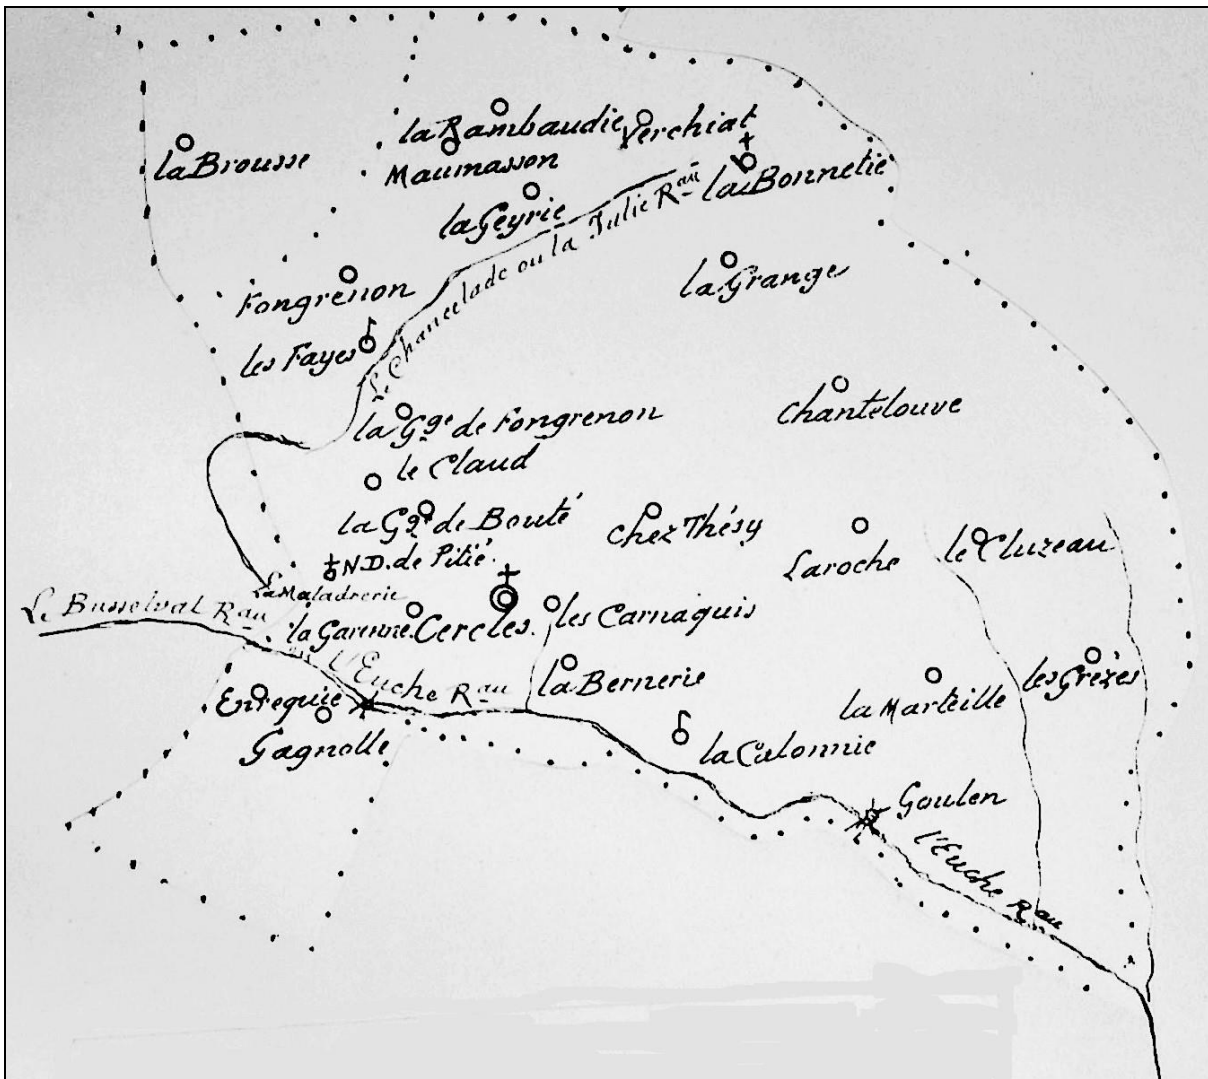 la Rambaudie
Verchiat
la Brousse
Maumasson
la Bonnetie
la Geyrie
Le Chancelade ou la Julie Rau
la Grange
Fongrenon
les Fayes
Chantelouve
la Gge de Fongrenon
le Claud
la Gge de Bouté
Chez Thésy
Laroche
le Cluzeau
N.D. de Pitié.
La Maladrerie
Le Busselval Rau
la Garenne.
Cercles.
les Carnaquis
L'Euche Rau
la Bernerie
les Grèzes
Enrequie
la Marteille
Gagnolle
la Calonnie
Goulen
l'Euche Rau